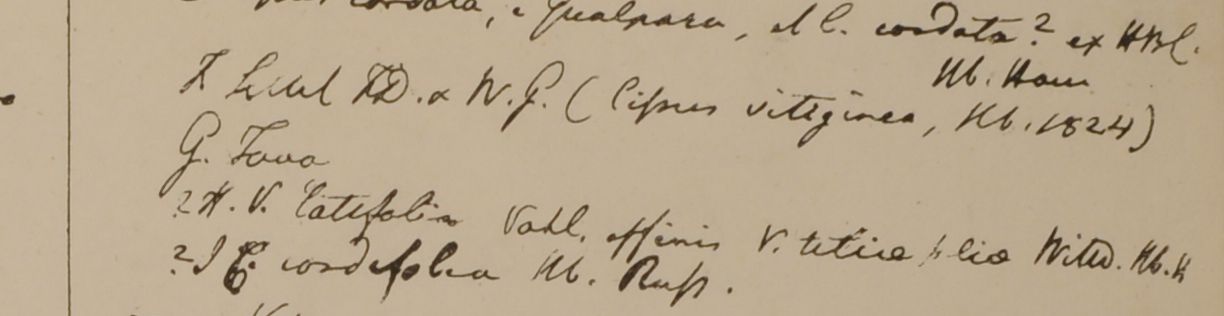 cordata, e Qualpara, et C. cordata? ex HBC.
Hb. Ham
F Settel FD. & W. G. (Cissus vitiginea, Hb. 1824)
G. Java
? H. V. latifolia Vahl. affinis V. tiliaefolia Willd. Hb. H
? I C. cordifolia Hb. Russ.